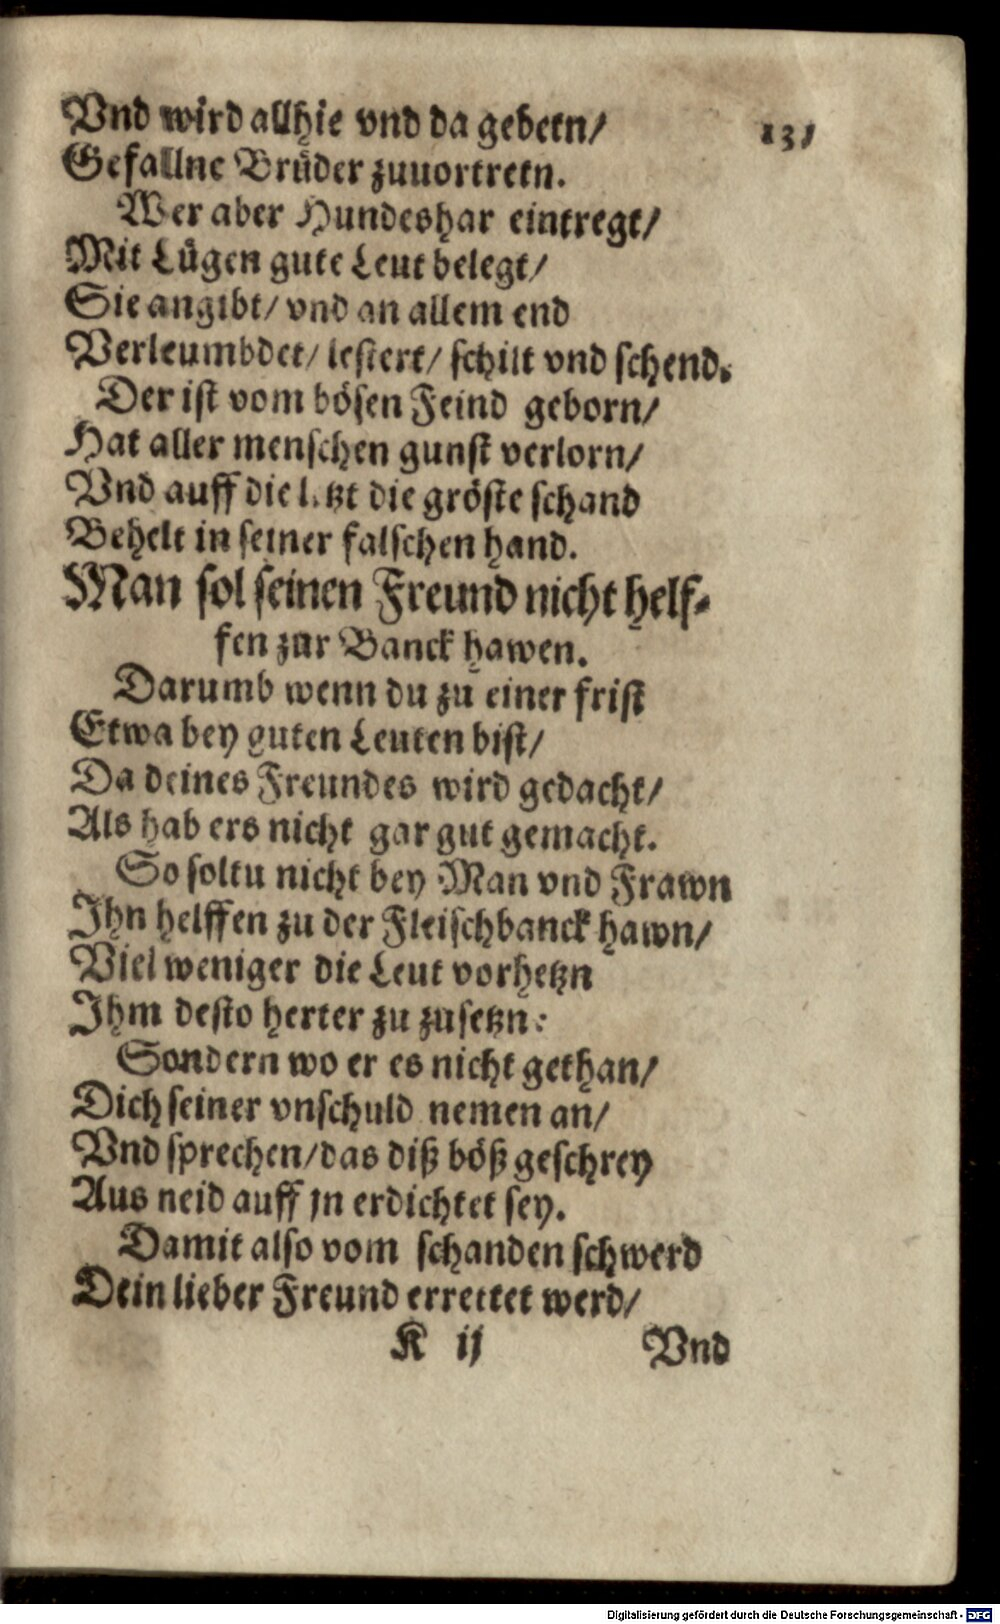 Vnd wird allhie vnd da gebetn/ 13/
Gefallne Brüder zuuortretn.
Wer aber Hundeshar eintregt/
Mit Lügen gute Leut belegt/
Sie angibt/ vnd an allem end
Verleumbdet/ lestert/ schilt vnd schend.
Der ist vom bösen Feind geborn/
Hat aller menschen gunst verlorn/
Vnd auff die letzt die gröste schand
Behelt in seiner falschen hand.
Man sol seinen Freund nicht helf-
fen zur Banck hawen.
Darumb wenn du zu einer frist
Etwa bey guten Leuten bist/
Da deines Freundes wird gedacht/
Als hab ers nicht gar gut gemacht.
So soltu nicht bey Man vnd Frawn
Ihn helffen zu der Fleischbanck hawn/
Viel weniger die Leut vorhetzn
Ihm desto herter zu zusetzn:
Sondern wo er es nicht gethan/
Dich seiner vnschuld nemen an/
Vnd sprechen/ das diß böß geschrey
Aus neid auff jn erdichtet sey.
Damit also vom schanden schwerd
Dein lieber Freund errettet werd/
K ij Vnd
Digitalisierung gefördert durch die Deutsche Forschungsgemeinschaft - DFG